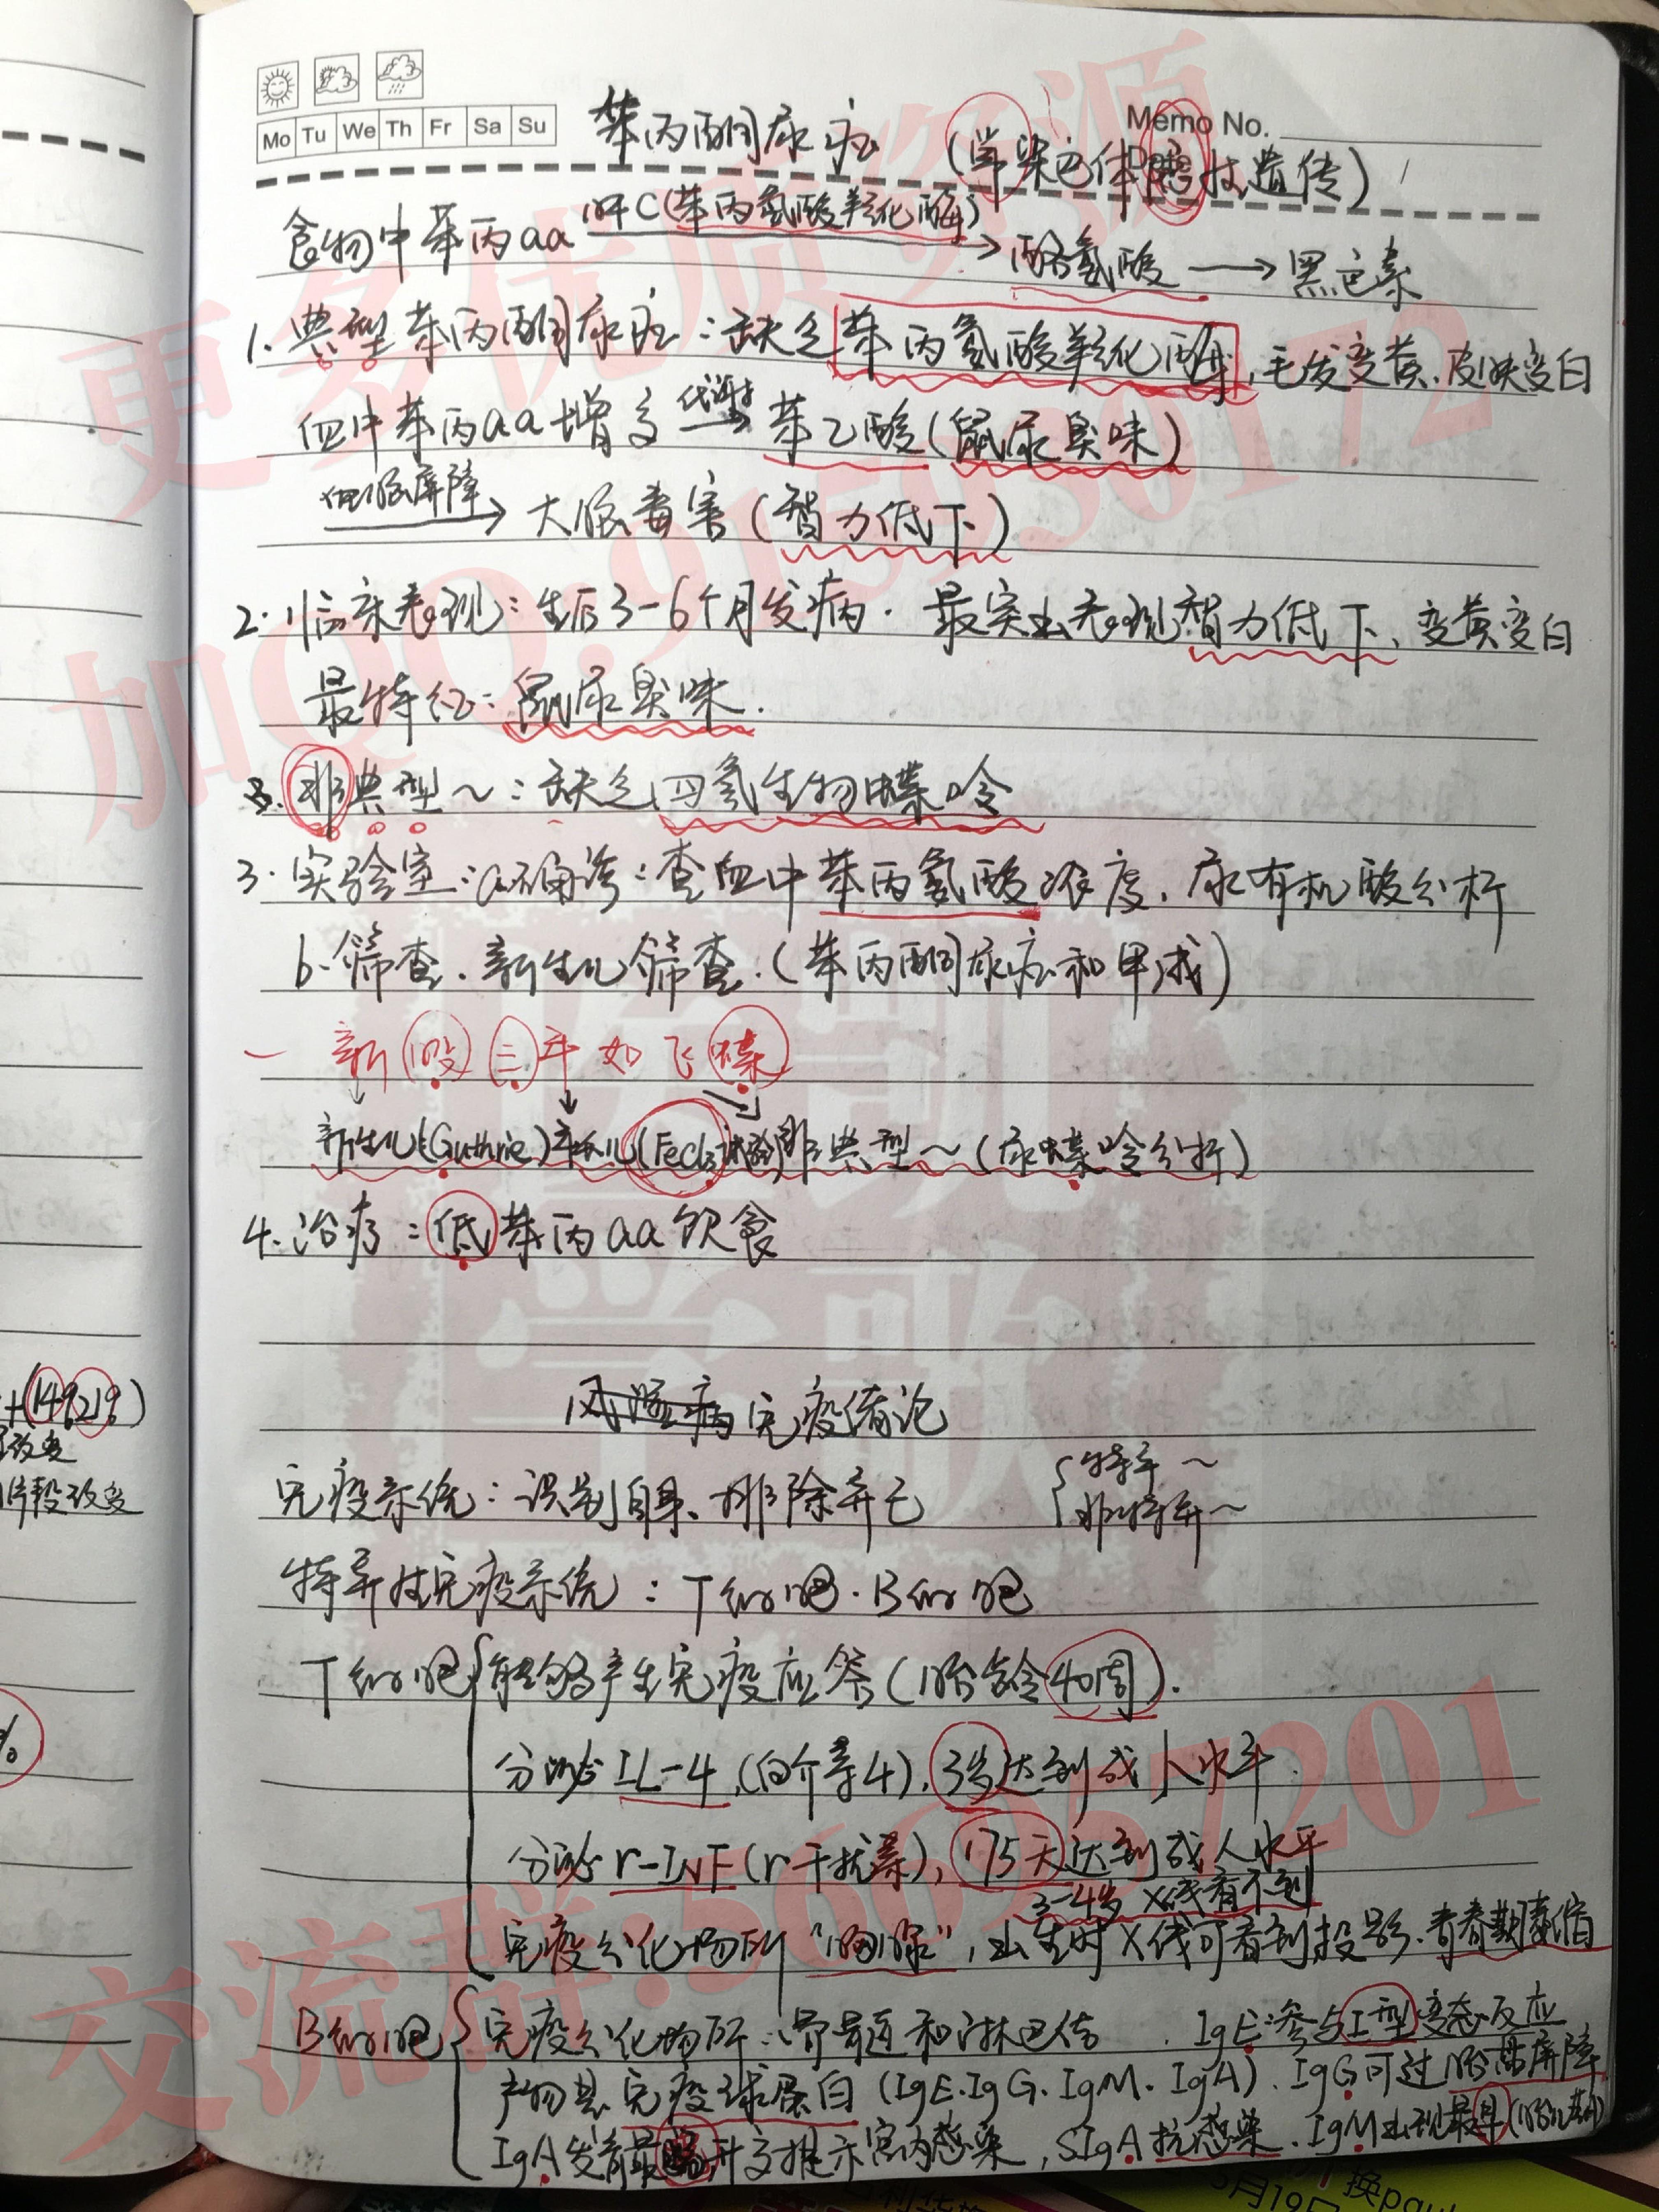 Mo Tu We Th Fr Sa Su
Memo No.
苯丙酮尿症 (常染色体隐性遗传)
食物中苯丙aa 肝C(苯丙氨酸羟化酶) → 酪氨酸 → 黑色素
1. 典型苯丙酮尿症：缺乏苯丙氨酸羟化酶，毛发变黄、皮肤变白
血中苯丙aa增高 代谢 → 苯乙酸(鼠尿臭味)
血脑屏障 → 大脑毒害(智力低下)
2. 临床表现：生后3-6个月发病. 最突出表现智力低下、变黄变白
最特征：鼠尿臭味.
非典型～：缺乏四氢生物蝶呤
3. 实验室：a.确诊：查血中苯丙氨酸浓度、尿有机酸分析
b.筛查、新生儿筛查.(苯丙酮尿症和甲减)
一 新 股 三 年 如 飞 蝶
新生儿(Guthrie) 年长儿(FeCl3试验) 非典型～(尿蝶呤分析)
4. 治疗：低苯丙aa饮食
免疫绪论
免疫系统：识别自身、排除异己 { 特异～
非特异～
特异性免疫系统：T细胞、B细胞
T细胞 { 能够产生免疫应答(胎龄40周).
分泌IL-4 (白介素4)、3岁达到成人水平.
分泌r-INF (r-干扰素)，175天达到成人水平
3-4岁 X线看不到
免疫分化场所 "胸腺"，出生时X线可看到投影、青春期萎缩
B细胞 { 免疫分化场所：骨髓和淋巴结 . IgE：参与I型变态反应
产物是免疫球蛋白 (IgE.IgG.IgM.IgA)、IgG可过胎盘屏障
IgA发育最 升高提示宫内感染，SIgA抗感染、IgM出现最早(胎儿期)
+(14q21q)
改变
片段改变
%
更多优质资源
加QQ:915930172
医凯
学歌
交流群:560957201
5月19日
换pau